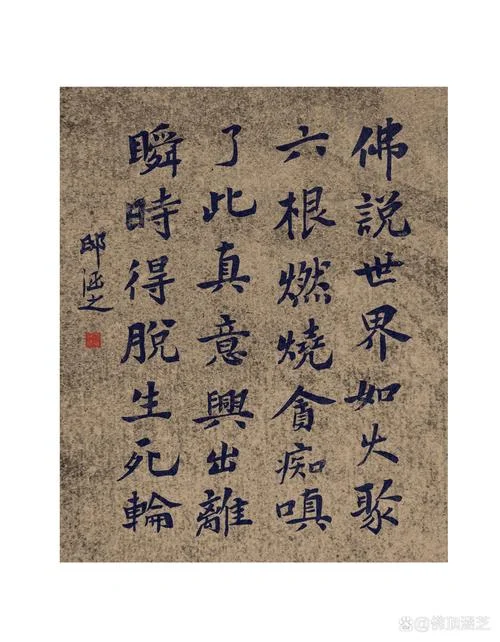 佛說世界如火聚
六根燃燒貪痴嗔
了此真意興出離
瞬時得脫生死輪
邱涵之
@佛顶涵芝